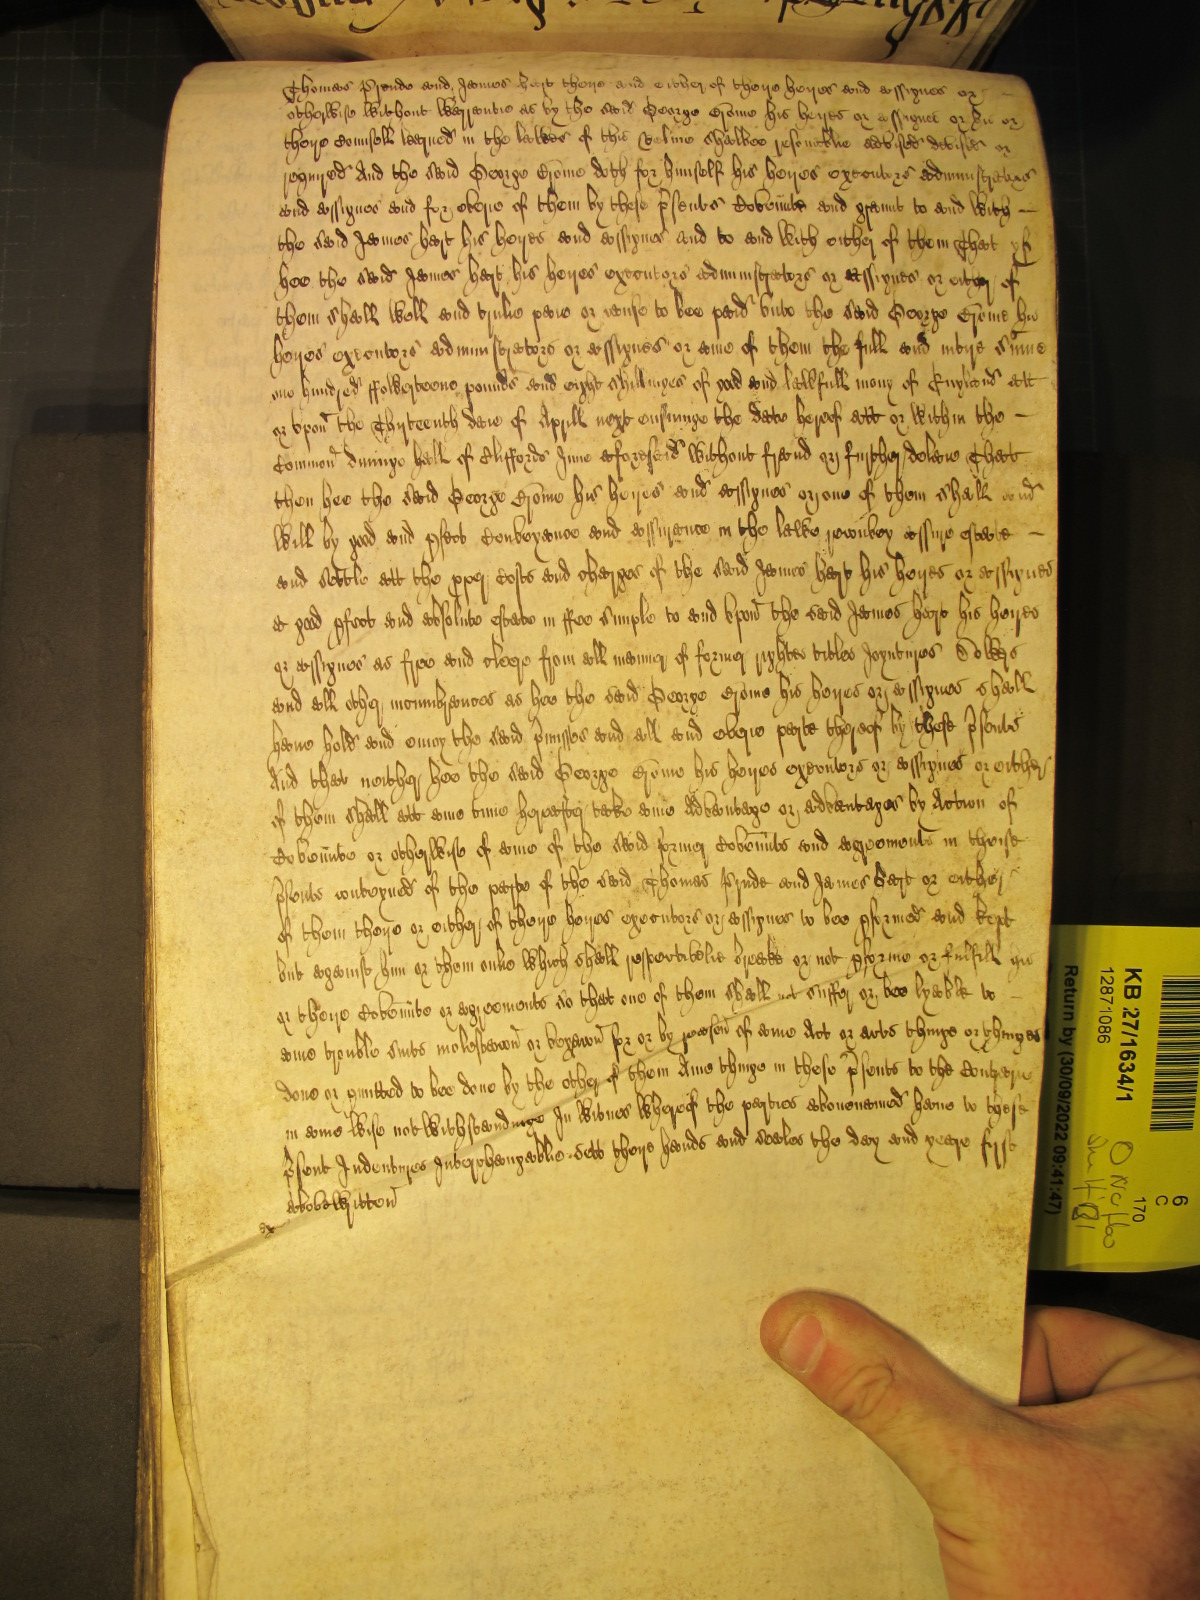 Thomas Prynde and James Hart there and either of there heyres and assignes or
otherwise without Warrantie as by the said George Crōme his heyres or assignes or his or
there Counsell learned in the lawes of this Realme shalbee resonablie advised devised or
required And the said George Crōme doth for himself his heyres executors administrators
and assignes and for everie of them by these p̄sents Coven̄nte and graunt to and with
the said James Hart his heyres and assignes and to and with either of them That yf
hee the said James Hart his heyres executors administrators or assignes or either of
them shall well and trulie paie or cause to bee paid unto the said George Crōme his
heyres executors administrators or assignes or anie of them the full and intire sūme
one hundred ffowerteene pounds and eight shillinges of good and lawfull mony of England att
or upon the Thyrteenth daie of Aprill next ensuinge the date hereof att or within the
Common dininge hall of Cliffords Inne aforesaid without fraud or further delaie That
then hee the said George Crōme his heyres and assignes or one of them shall and
will by good and pfect Conveyance and assurance in the lawe reconvey assure estate
and settle att the pper Costs and charges of the said James Hart his heyres or assignes
a good pfect and absolute estate in ffee simple to and upon the said James Hart his heyres
or assignes as free and cleere from all manner of former rights titles Joyntures Dowers
and all other incumbrances as hee the said George Crōme his heyres or assignes shall
haue hold and enioy the said p̄misses and all and everie parte thereof by these p̄sents
And that neither hee the said George Crōme his heyres executors or assignes or either
of them shall att anie time hereafter take anie advantage or advantages by Action of
Coven̄nte or otherwise of anie of the said former Coven̄nts and agreements in theise
p̄sents conteyned of the parte of the said Thomas Prynde and James Hart or either
of them there or either of there heyres executors or assignes to bee pformed and kept
but against him or them onlie which shall respectivelie breake or not pforme or fulfill his
or there Coven̄nts or agreements so that one of them shall not suffer or bee lyable to
anie trouble suits molestacon or vexacon for or by reason of anie Act or acts thinge or thinges
done or pmitted to bee done by the other of them Anie thinge in these p̄sents to the Contrarie
in anie wise notwithstandinge In witnes whereof the parties abouenamed haue to these
p̄sent Indentures Interchangeablie sett there hands and seales the day and yeare first
abovewritten
KB 27/1634/1
12871086
Return by (30/09/2022 09:41:47)
6
C
170